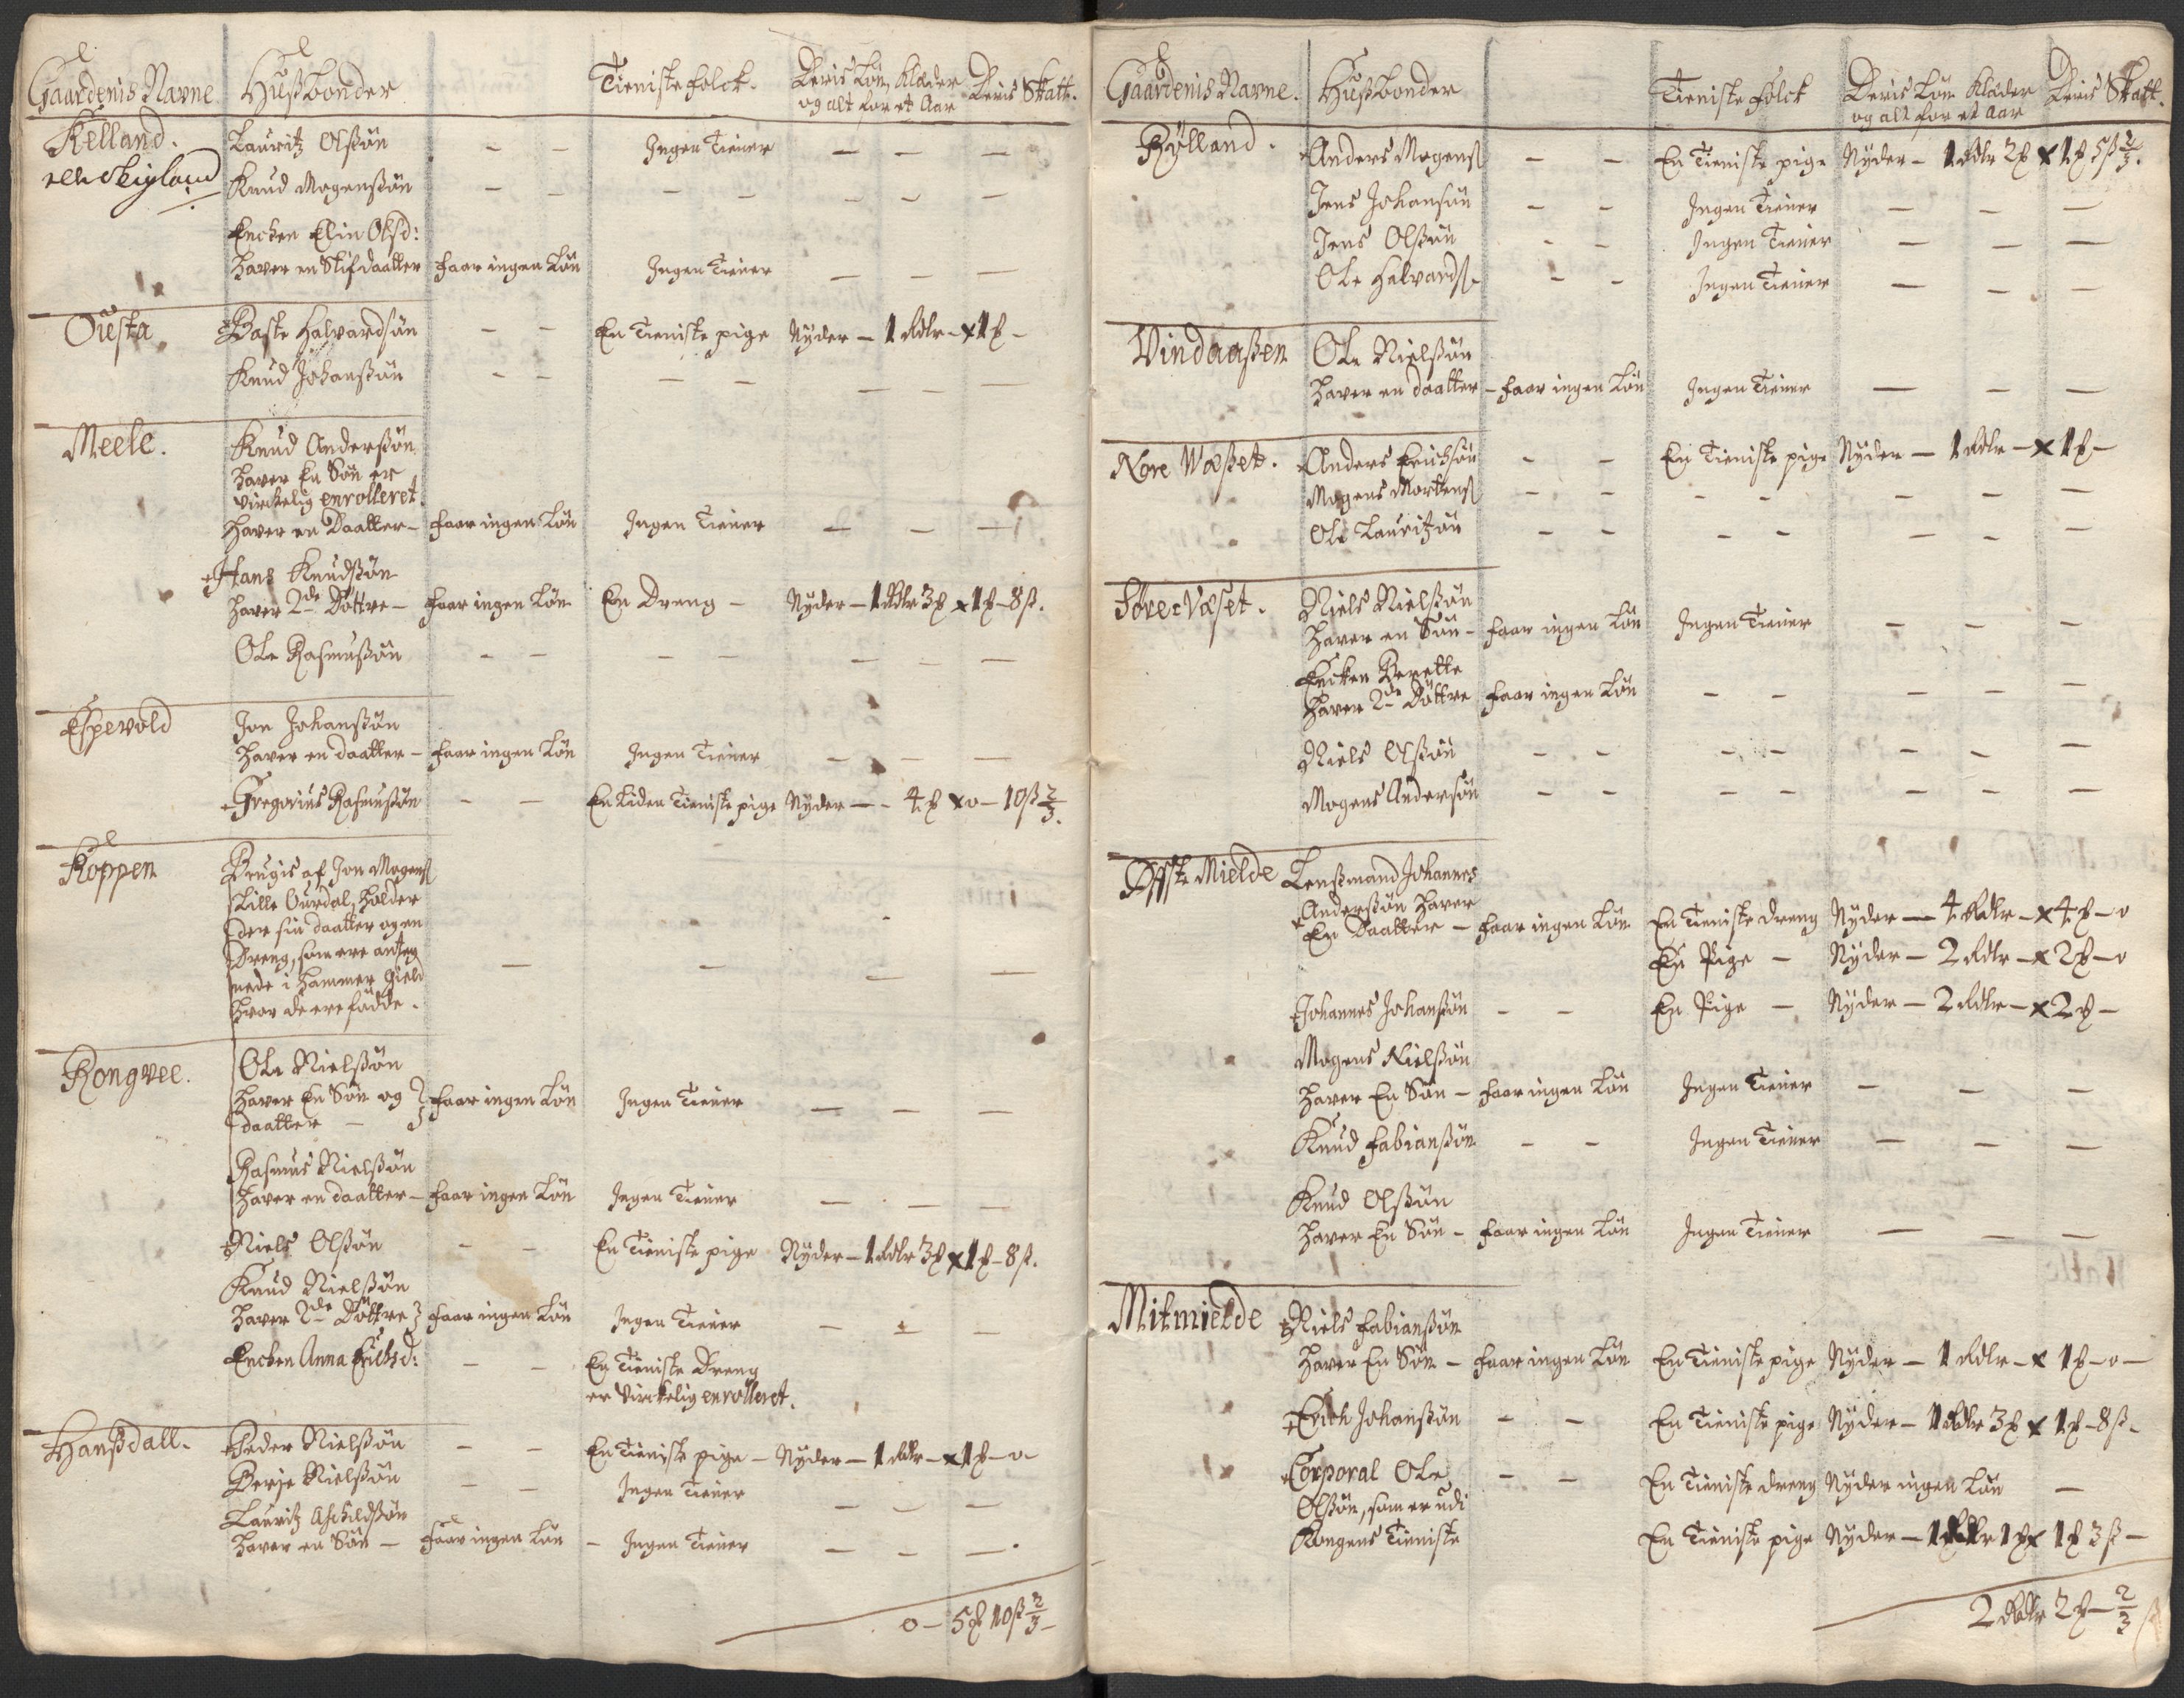 Gaardenis Navne Hußbonder Tieniste folck. Deris Løn, Klæder og alt for et Aar Deris Skatt.
Kelland. Lauritz Olßøn - - Ingen Tiener - - -
Knud Mogenßøn - - - - - - -
Encken Elin Olsd:
haver en Stifdaatter faar ingen Løn Ingen Tiener - - -
Oüsta Baste Halvardsøn - - En Tieniste pige Nÿder - 1 Rdlr - x 1 ꝑ -
Knud Johanßøn - - - - - - -
Meele. Knud Anderßøn
haver En Søn er
virckelig enrolleret.
haver en Daatter - faar ingen Løn Ingen Tiener - - -
Hans Knudßøn
haver 2de Døttre - faar ingen Løn En Dreng - Nÿder - 1 Rdlr 3 ꝑ x 1 ꝑ - 8 ß.
Ole Rasmußøn - - - - - - -
Espevold Jon Johanßøn
haver en daatter - faar ingen Løn Ingen Tiener - - -
Gregorius Rasmußøn - - En liden Tieniste pige Nÿder - - 4 ꝑ x o - 10 ß 2/3.
Koppen Brugis af Jon Mogens
Lille Ourdal, holder
der sin daatter og en
Dreng, som ere anteg
nede i Hammer Gield
hvor de ere fødde. - - - -
Rongvee. Ole Nielßøn
haver En Søn og
daatter - faar ingen Løn Ingen Tiener - - -
Rasmus Nielßøn
haver en daatter - faar ingen Løn Ingen Tiener - - -
Niels Olßøn - - En Tieniste pige Nÿder - 1 Rdlr 3 ꝑ x 1 ꝑ - 8 ß.
Knud Nielßøn
haver 2de Døttre faar ingen Løn Ingen Tiener - - -
Encken Anna Erichsd: - - En Tieniste Dreng
er Virckelig enrolleret.
Hanßdall. Peder Nielßøn - - En Tieniste pige - Nÿder - 1 Rdlr - x 1 ꝑ - o -
Berje Nielßøn - - Ingen Tiener - - -
Lauritz Aschildßøn
haver en Søn - faar ingen Løn - Ingen Tiener - - -
o - 5 ꝑ 10 ß 2/3 -
Gaardenis Navne. Hußbonder Tieniste Folck Deris Løn Klæder og alt for et Aar Deris Skatt.
Rÿlland. Anders Mogens - - En Tieniste pige Nÿder - 1 Rdlr 2 ꝑ x 1 ꝑ 5 ß 2/3.
Jens Johansøn - - Ingen Tiener - - -
Jens Olßøn - - Ingen Tiener - - -
Ole Halvards - - Ingen Tiener - - -
Vindaaßen Ole Nielßøn
haver en daatter - faar ingen Løn Ingen Tiener - - -
Nore Wæßet. Anders Erichsøn - - En Tieniste pige Nÿder - 1 Rdlr - x 1 ꝑ -
Mogens Mortens - - - - - - -
Ole Lauritzøn - - - - - - -
Søre Væset. Niels Nielßøn
haver en Søn - faar ingen Løn Ingen Tiener - - -
Encken Berette
haver 2de Døttre faar ingen Løn - - - - -
Niels Olßøn - - - - - - -
Mogens Andersøn - - - - - - -
Øffste Mielde Lensmand Johannes
Anderßøn haver
En Daatter - faar ingen Løn En Tieniste dreng Nÿder - 4 Rdlr - x 4 ꝑ - o
En Pige - Nÿder - 2 Rdlr - x 2 ꝑ - o
Johannes Johanßøn - - En Pige - Nÿder - 2 Rdlr - x 2 ꝑ -
Mogens Nielßøn
haver En Søn - faar ingen Løn Ingen Tiener - - -
Knud Fabianßøn - - Ingen Tiener - - -
Knud Olßøn
haver En Søn - faar ingen Løn Ingen Tiener - - -
Mitmielde Niels Fabianßøn
haver En Søn - faar ingen Løn En Tieniste pige Nÿder - 1 Rdlr - x 1 ꝑ - o -
Erich Johanßøn - - En Tieniste pige Nÿder - 1 Rdlr 3 ꝑ x 1 ꝑ - 8 ß -
Corporal Ole - - En Tieniste dreng Nÿder ingen Løn -
Olßøn, som er udi
Kongens Tieniste En Tieniste pige Nÿder - 1 Rdlr 1 ꝑ x 1 ꝑ 3 ß -
2 Rdlr 2 ꝑ - 2/3 ß